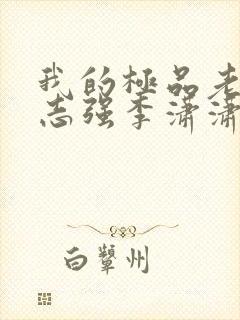 我的極品老
志强李潇潇
白颦州